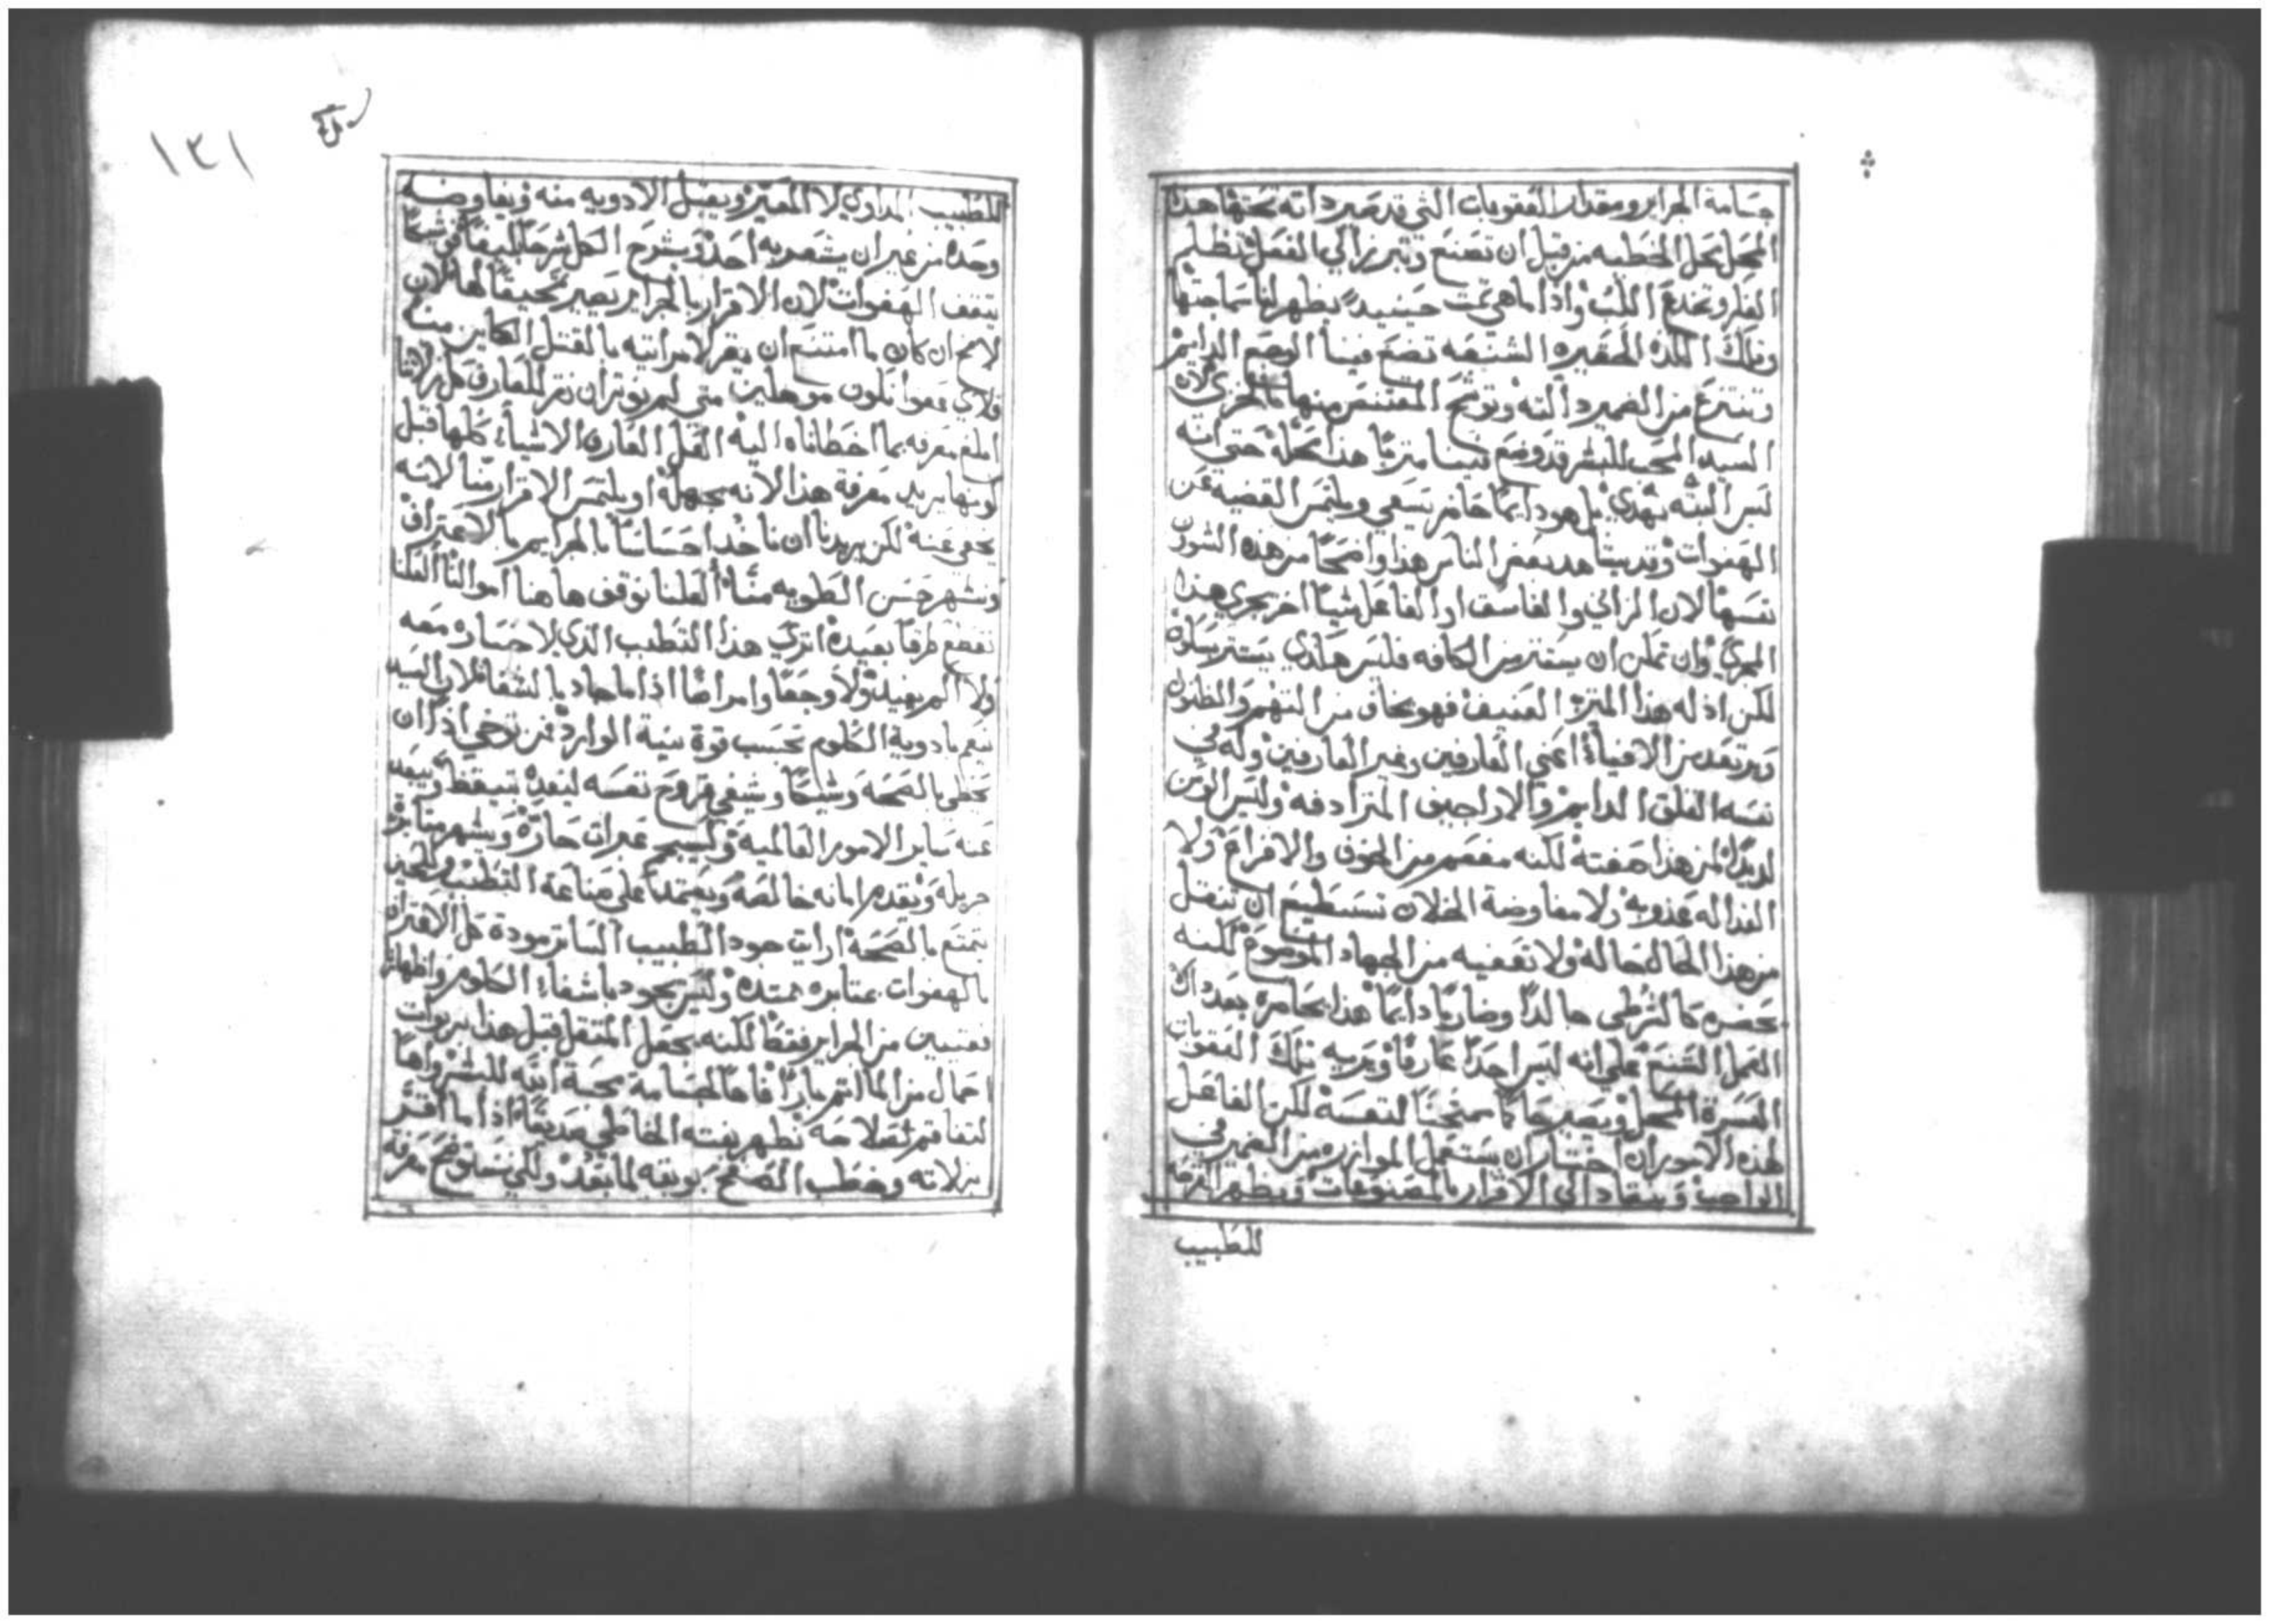 جسامة الجراير ومقدار العقوبات التي قد صير داته تحتها هذا
المحل محل الخطيه من قبل ان تصنع وتبرز الي الفعل تظلم
الفكر وتخدع اللب واذا ما هي تمت حينيدٍ يظهر لنا سماجتها
وتلك اللذه الحقيره الشنعه تضع فينا الوجع الدايم
وتنتزع من الضمير دالته وتوشح المقتنص منها بالخزي لان
السيد المحب للبشر قد وضع فينا متربًا هذا محله حتي انه
ليس البته يهدي بل هو دايمًا حاضر يسعي ويلتمس القضيه عن
الهفوات وقد يشاهد بعض الناس هذا واضحًا من هذه الشرور
نفسها لان الزاني والفاسق او الفاعل شيًا اخر يجري هذا
المجري وان تمكن ان يستتر من الكافه فليس هكذي يستتر بسلوه
لكن اذ له هذا المترب العنيف فهو يخاف من التهم والظنون
ويرتعد من الافياء اعني العارفين وغير العارفين وله في
نفسه القلق الدايم والاراجيف المترادفه وليس الوسن
لديدًا لمن هذا صفته لكنه مفعم من الخوف والافزاع ولا
الغدا له عذوبه ولا مفاوضة الخلان تستطيع ان تنقل
من هذا الحال حاله ولا تعفيه من الجهاد الموضوع لكنه
يحضره كالشرطي جالدًا وضاربًا دايمًا هذا يخامره بعد ذلك
العمل الشنع علي انه ليس احدًا عارفًا ويعريه تلك العقوبات
العسرة المحمل ويصير حاكمًا ممتحنًا لنفسه لكن الفاعل
لهذه الامور ان اختار ان يستعمل الموازره من الضمير في
الواجب وينقاد الي الاقرار بالمصنوعات ويظهر القرحه
للطبيب
١٢١
للطبيب المداوي لا المعير ويقبل الادويه منه ويفاوضه
وحده من غير ان يشعر به احد ويشرح الكل شرحًا بليغًا في شيمًا
يتقف الهفوات لان الاقرار بالجراير يصير تمحيقًا لها لان
لامخ ان كان ما امتنع ان يقر لامراتيه بالقتل الكاين منه
فلاي عفو نكون موهلين متي لم نوثر ان نقر للعارف كل زلاتنا
ابلغ معرفه بما اخطاناه اليه العل العارف الاشياء كلها قبل
كونها يريد معرفة هذا لانه يجهله او يلتمس الاقرار منا لانه
يخفي عنه لكن يريدنا ان ناخذ احساسًا بالجرايم بالاعتراف
ونشهر حسن الطويه منّا العلنا نوقف هاهنا اموالنا العلنا
نقطع طرقًا بعيدة اتري هذا التطبب الذي لا خساره معه
ولا الم يفيد ولا وجعًا وامراضًا اذا ما جاد بالشفا لان السيد
ينعم بادوية الكلوم بحسب قوة نية الوارد فمن توخي اذًا ان
يحظي بالصحه وشيكًا ويشفي قروح نفسه ليغدِ متيقظًا ويبعد
عنه ساير الامور العالميه وليسجم عبرات حارّه ويشهر مثابره
جزيله ويقدم امانه خالصه ويعتمد علي صناعة التطبب ولحين
يتمتع بالصحه ارايت جود الطبيب الساتر مودة كل الاقترار
بالهفوات عثابره ممتده وليس يجود باشفاء الكلوم واظهار
نقيين من الجراير فقط لكنه يجعل المتقل قبل هذا بربوات
احمال من الماثم بارًا فاها لجسامة محبة ابنه للبشر واها
لتفاقم صلاحه تظهر بغته الخاطي صديقًا اذا ما اقتر
بزلاته وخطب الصفح بوبقه لما بعد ولكي نستوضح معرفة